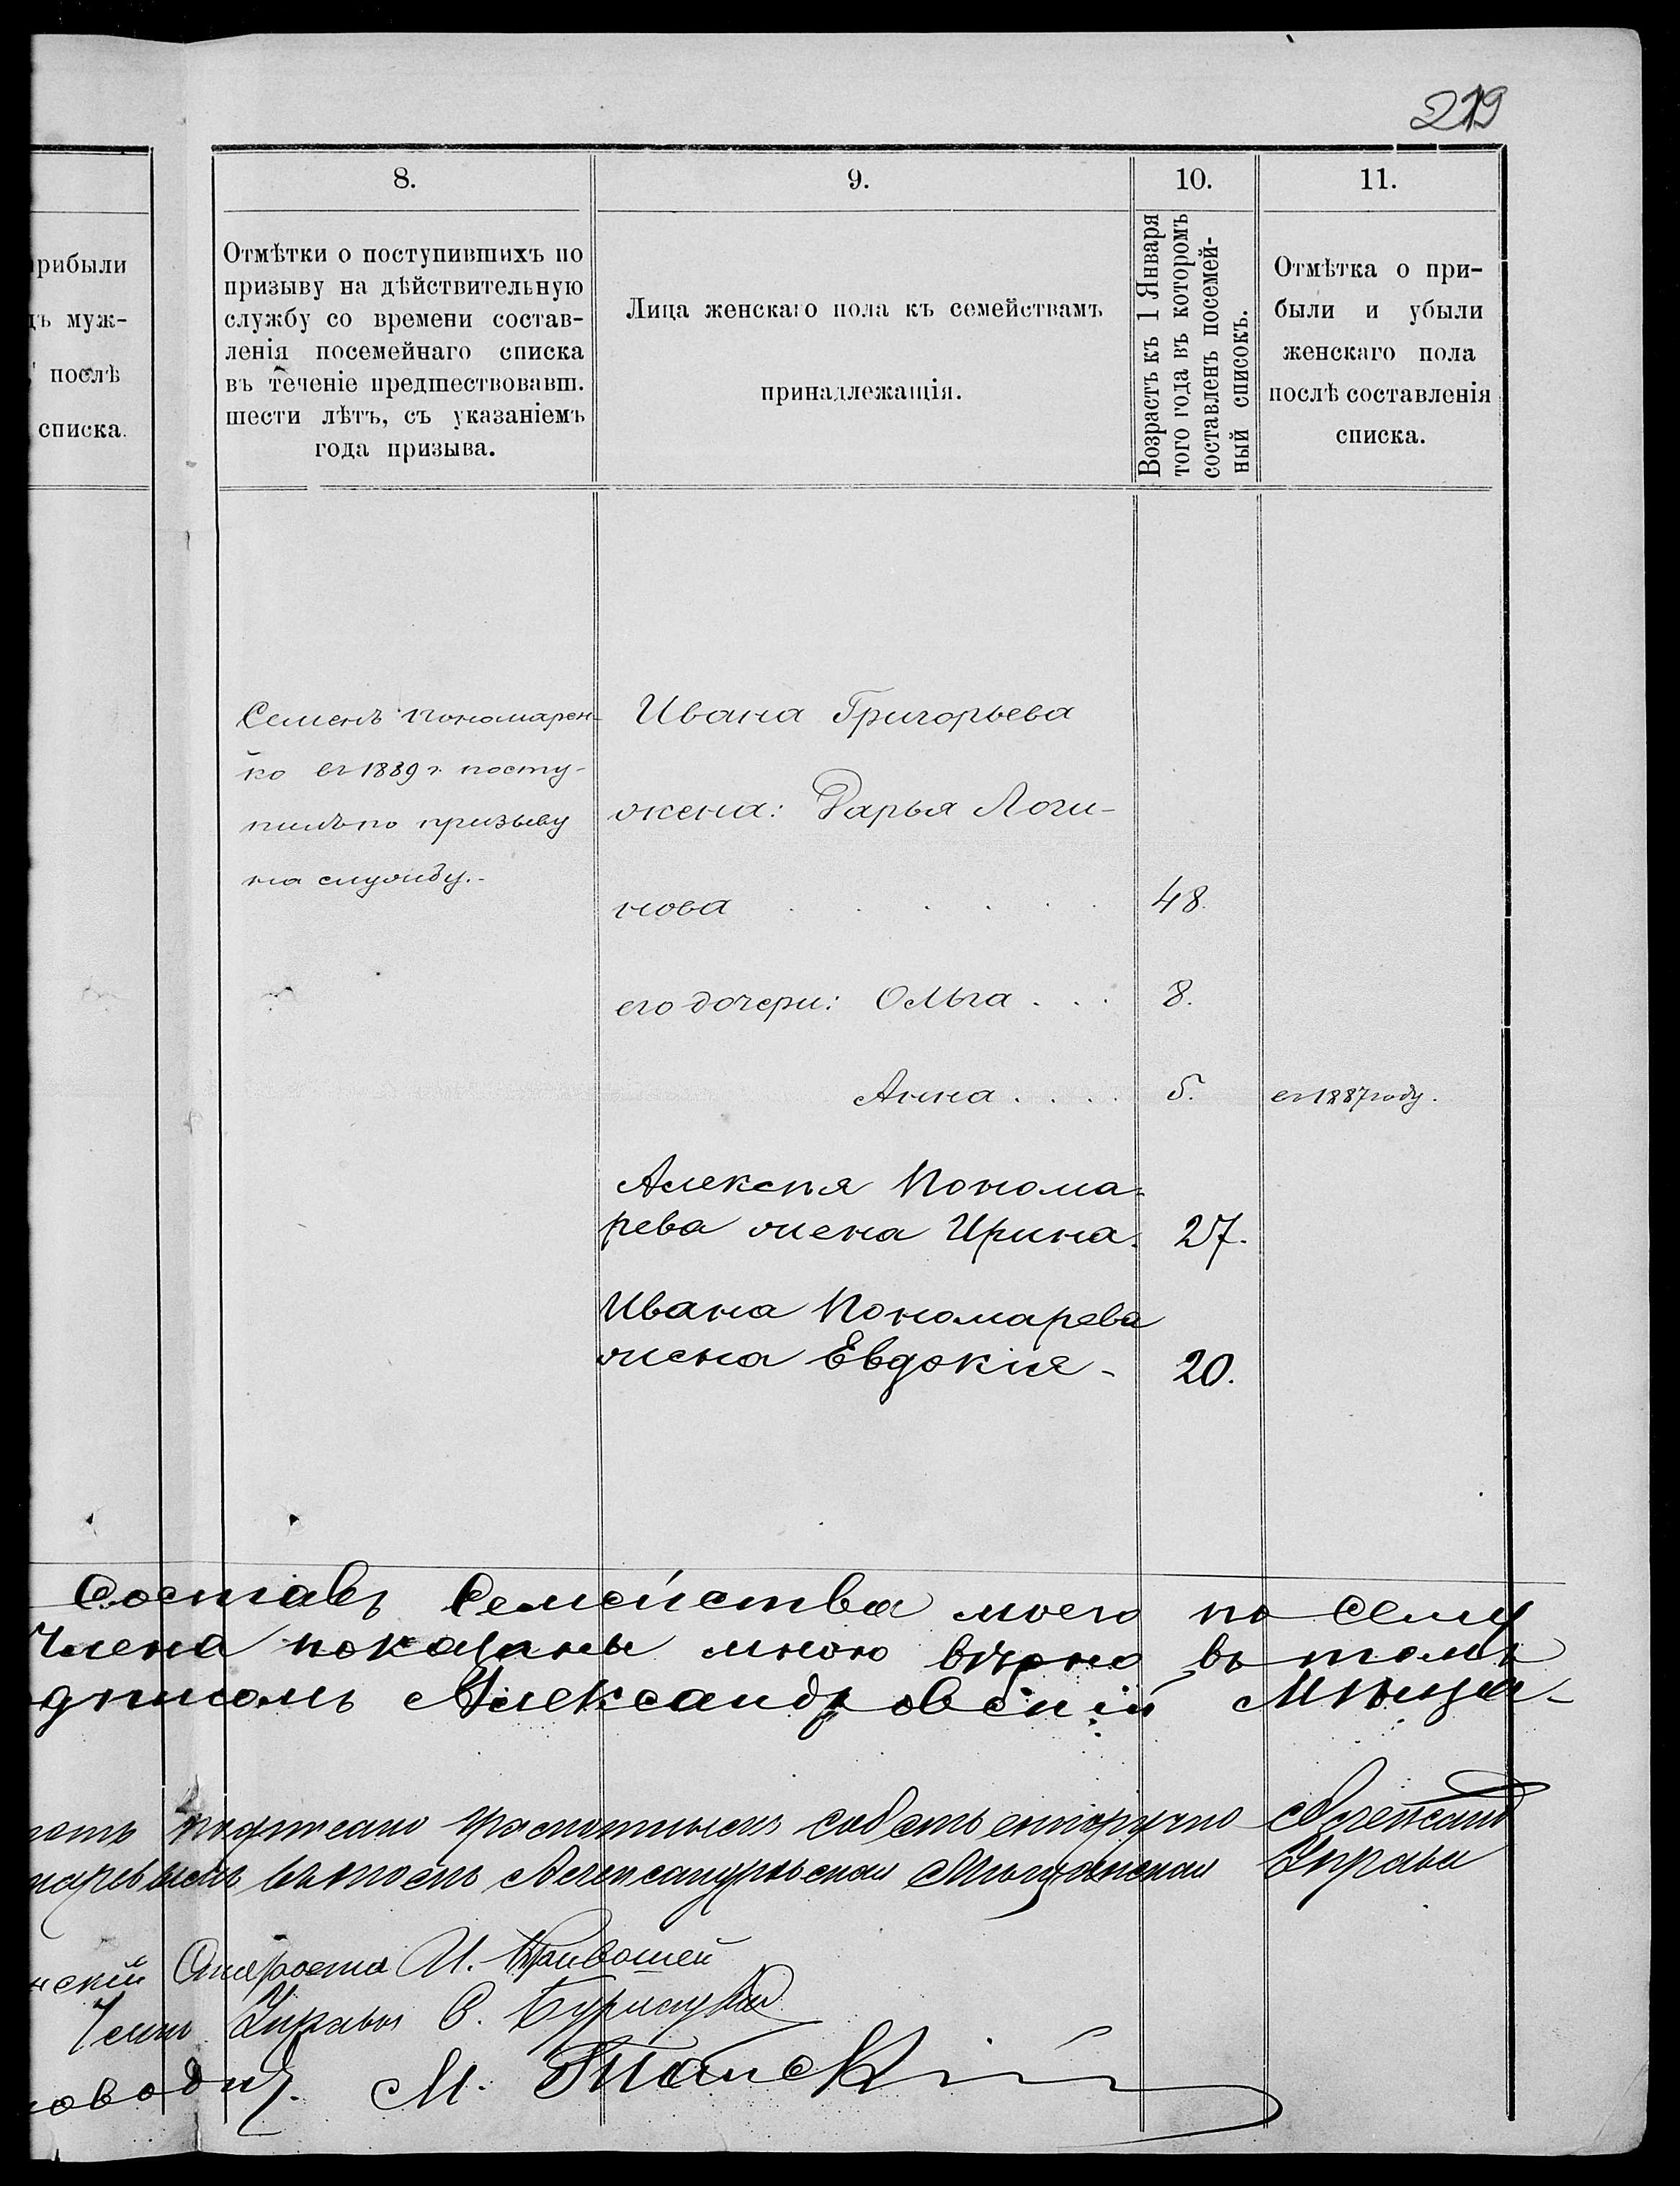 219
прибыли
муж-
послѣ
списка.
8.
Отмѣтки о поступившихъ по
призыву на дѣйствительную
службу со времени состав-
ленія посемейнаго списка
въ теченіе предшествовавш.
шести лѣтъ, съ указаніемъ
года призыва.
9.
Лица женскаго пола къ семействамъ
принадлежащія.
10.
Возрастъ къ 1 Января
того года въ которомъ
составленъ посемей-
ный списокъ.
11.
Отмѣтка о при-
были и убыли
женскаго пола
послѣ составленія
списка.
Семенъ Пономарен-
ко въ 1889 г. посту-
пилъ по призыву
на службу.-
Ивана Григорьева
жена: Дарья Логи-
нова . . . . . . 48.
его дочери: Ольга . . . 8.
Анна . . . . 5. въ 1887 году.
Алексѣя Понома-
рева жена Ирина. 27.
Ивана Пономарева
жена Евдокія - 20.
Составъ Семейства моего по сему
члена показаны мною вѣрно въ томъ
Александровскій Мѣща-
подписано собственноручно
въ томъ Александровская Мѣщанская Управа
нскій Староста И. Кривошей
Членъ Управы С.
М.